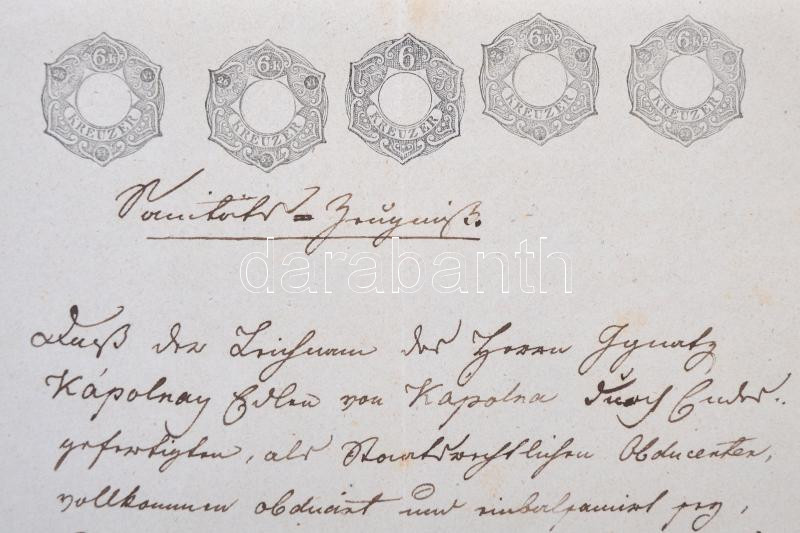 6 K KREUZER 6 K KREUZER 6 KREUZER 6 K KREUZER 6 K KREUZER
Sanitäts=Zeugniß.
darabanth
Daß der Leichnam des Herrn Ignatz
Kápolnay Edlen von Kápolna durch Endes..
gefertigten, als Staatsrechtlichen Obducenten,
vollkommen obducirt und einbalsamirt sey,